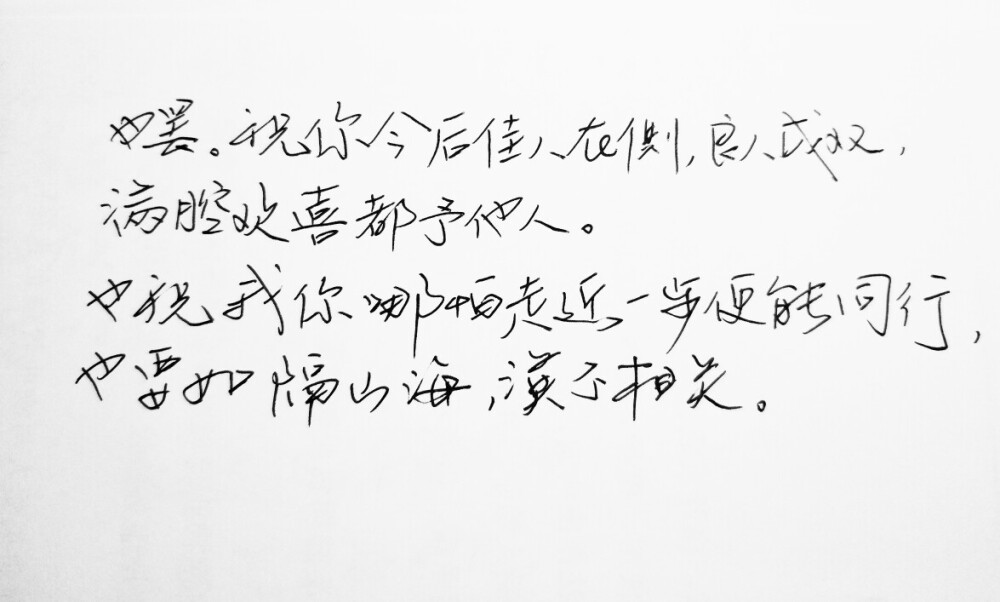 也罢。祝你今后佳人在侧,良人成双,
满腔欢喜都予他人。
也祝我你哪怕走近一步便能同行,
也要如隔山海,漠不相关。